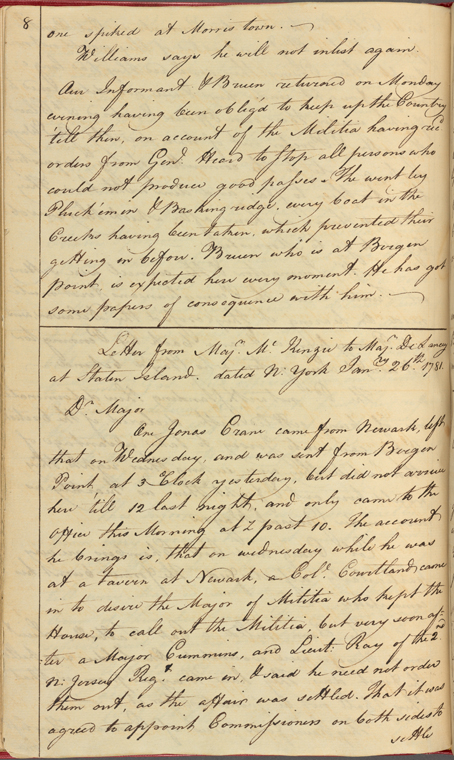 8
one spiked at Morris town. —
Williams says he will not inlist again.
Our Informant & Bruen returned on Monday
evening having been oblig'd to keep up the Country
'till then, on account of the Militia having rec.d
orders from Gen.l Heard to stop all persons who
could not produce good passes. The went by
Pluck'imin & Baskingridge, every boat in the
Creeks having been taken, which prevented their
getting in before. Bruen who is at Bergen
point, is expected here every moment. He has got
some papers of consequence with him. —
Letter from Maj.r Mc Kinzie to Maj.r De Lancey
at Staten Island. dated N: York Jan.ry 26.th 1781.
D.r Major
One Jonas Crane came from Newark, left
that on Wednesday, and was sent from Bergen
Point at 3 oClock yesterday, but did not arrive
here 'till 12 last night, and only came to the
Office this Morning at ½ past 10. The account
he brings is, that on wednesday while he was
at a tavern at Newark, a Col.l Courtland came
in to desire the Major of Militia who kept the
House, to call out the Militia, but very soon af-
-ter a Major Cummins, and Lieut: Ray of the 2.nd
N: Jersey Reg.t came in, & said he need not order
them out, as the affair was settled. That it was
agreed to appoint Commissioners on both sides to
settle